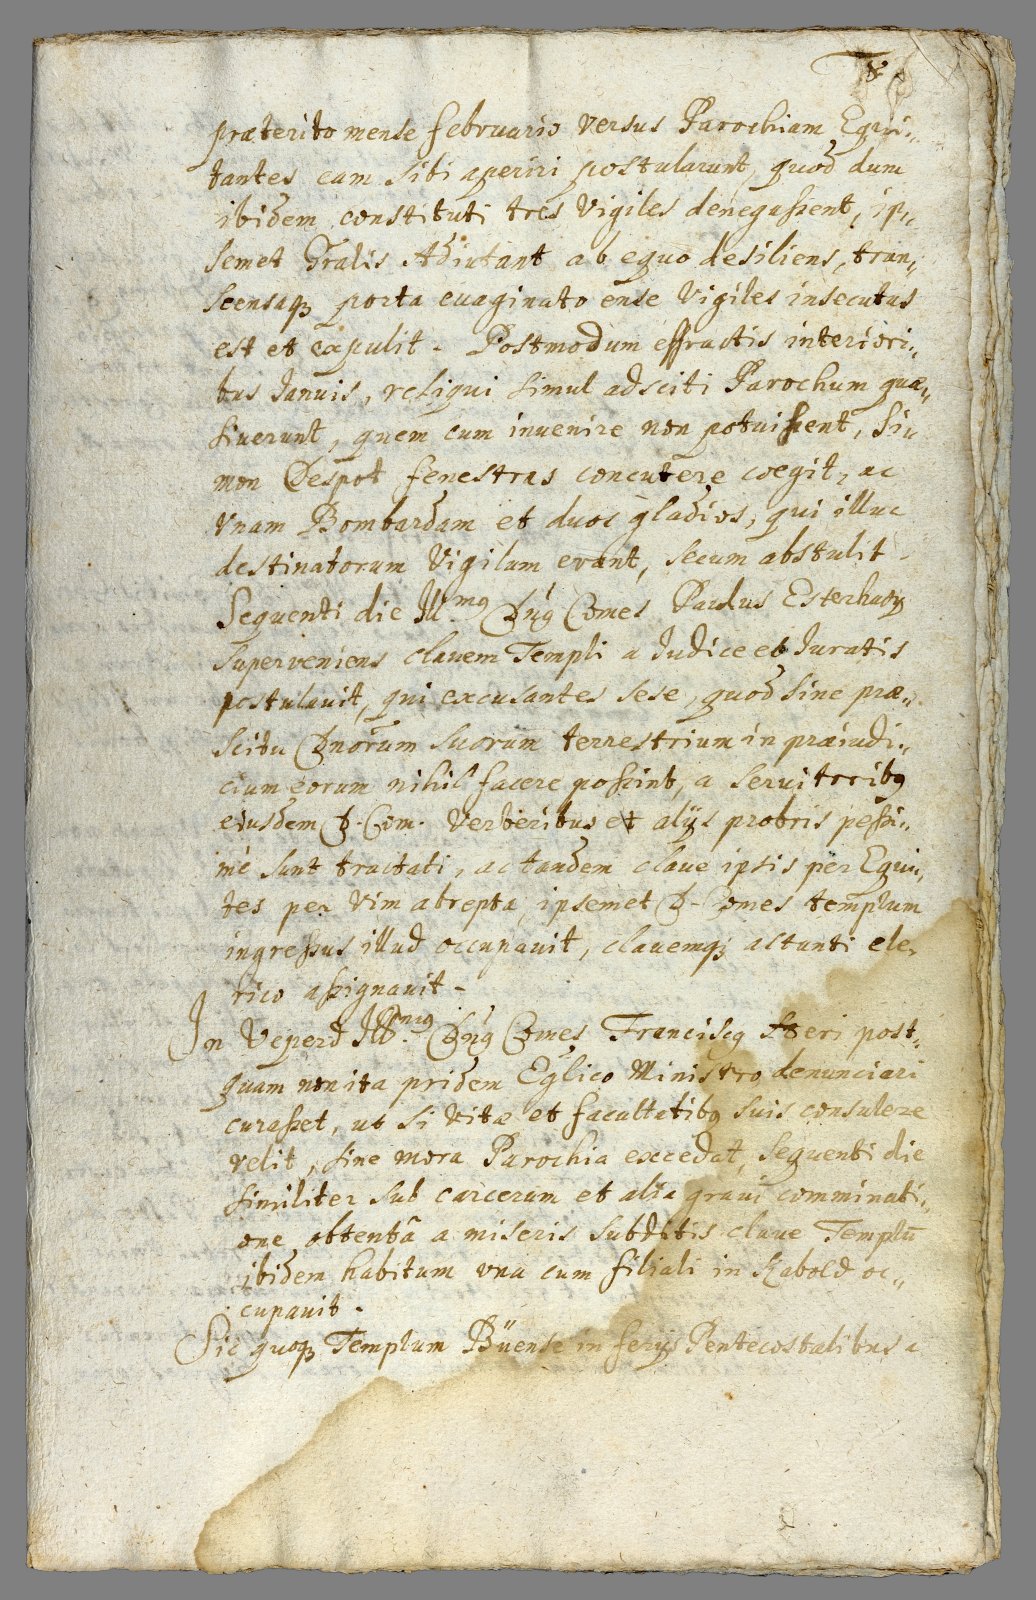 præterito mense februario versus Parochiam Equi„
tantes eam sibi aperiri postularunt, quod dum
ibidem constituti tres Vigiles denegassent, ip„
semet Gralis Adiutant ab equo desiliens, tran„
scensaq; porta evaginato ense Vigiles insecutus
est et expulit. Postmodum effractis interiori„
bus Januis, reliqui simul adsciti Parochum quæ„
siverunt, quem cum invenire non potuissent, Si„
mon Despot fenestras concutere coegit, ac
Vnam Bombardam et duos gladios, qui illuc
destinatorum Vigilum erant, secum abstulit
Sequenti die Ill.mq Dnq Comes Paulus Esterhazy
superveniens clavem Templi a Judice et Juratis
postulavit, qui excusantes sese, quod sine præ„
scitu Dnorum suorum terrestrium in præiudi„
cium eorum nihil facere possint, a servitoribq
eiusdem D. Com. verberibus et alijs probris pessi„
mè sunt tractati, ac tandem clave ipsis per Equi„
tes per vim abrepta, ipsemet D. Comes templum
ingressus illud occupavit, clavemq; astanti cle„
rico assignavit.
In Veperd Ill.mq Dnq Comes Franciscq post„
quam non ita pridem Eglico Ministro denunciari
curasset, ut si vitæ et facultatibq suis consulere
velit, sine mora Parochia excedat, sequenti die
similiter sub carcerum et alia gravi comminati„
one obtentâ a miseris subditis clave Templū
ibidem habitum una cum filiali in Kabold oc„
cupavit.
Sic quoq; Templum Büense in ferijs Pentecostalibus a